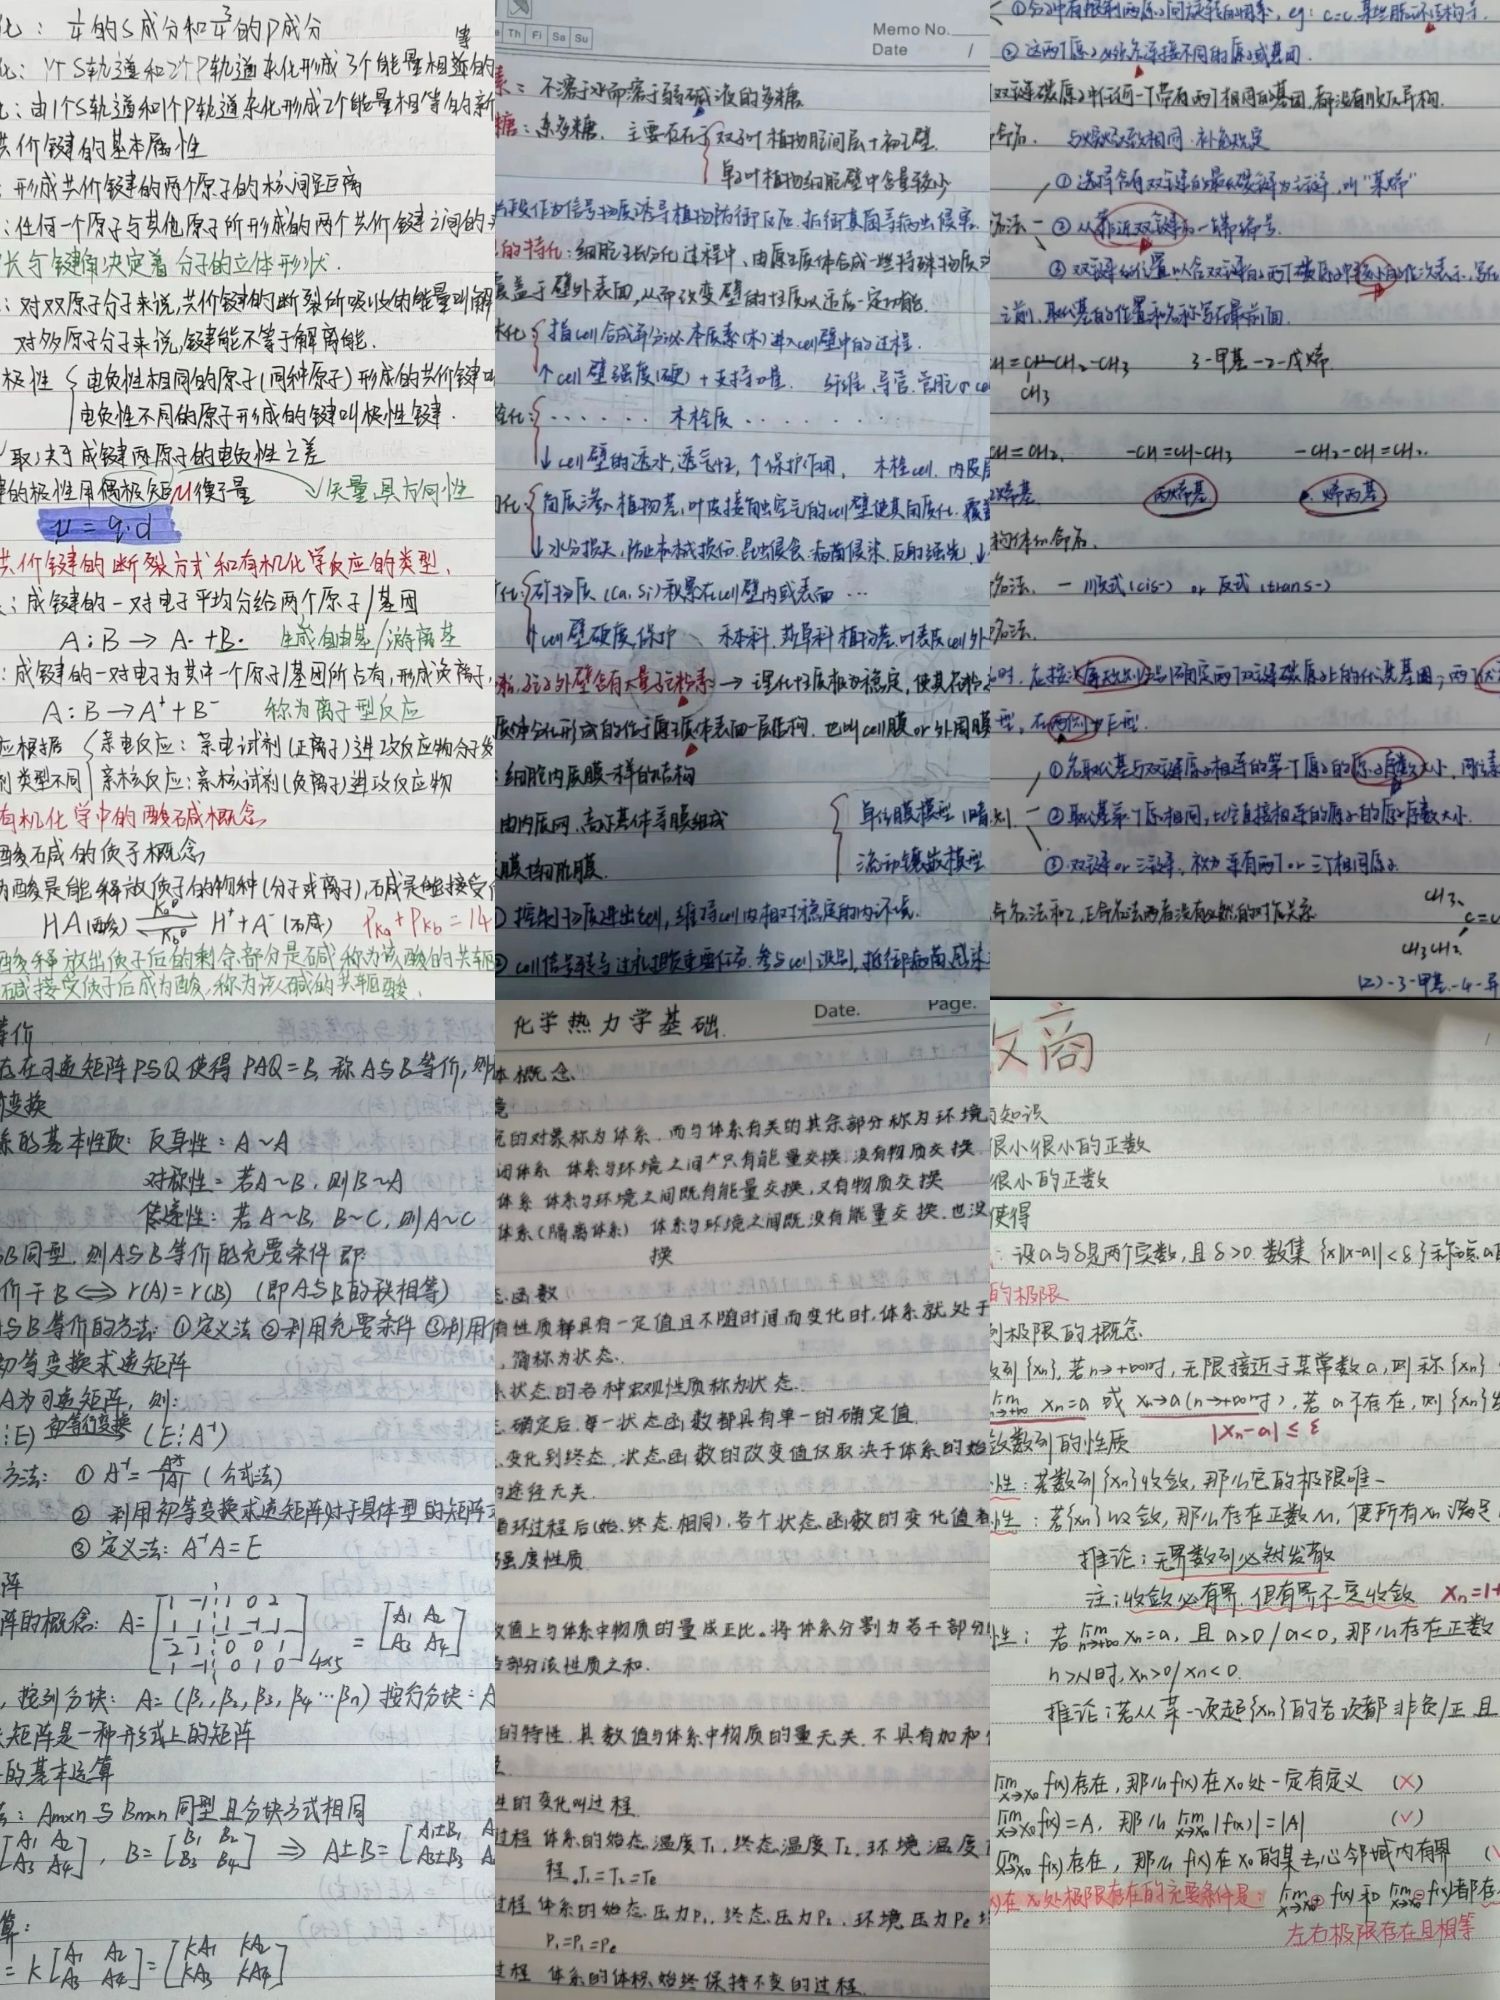 化：1/4的S成分和3/4的P成分
化：1个S轨道和2个P轨道杂化形成3个能量相等的
：由1个S轨道和1个P轨道杂化形成2个能量相等的新
共价键的基本属性
：形成共价键的两个原子的核间距离
：任何一个原子与其他原子所形成的两个共价键之间的
长与键角决定着分子的立体形状.
：对双原子分子来说,共价键的断裂所吸收的能量叫解
对多原子分子来说,键能不等于解离能.
极性 { 电负性相同的原子(同种原子)形成的共价键叫
电负性不同的原子形成的键叫极性键.
取决于成键两原子的电负性之差
的极性用偶极矩μ衡量 →矢量,具方向性
μ=q·d
共价键的断裂方式和有机化学反应的类型.
：成键的一对电子平均分给两个原子/基团
A:B → A· + B· 生成自由基/游离基
：成键的一对电子为其中一个原子/基团所占有,形成负离子,
A:B → A⁺ + B⁻ 称为离子型反应
应根据 { 亲电反应：亲电试剂(正离子)进攻反应物分子发
剂类型不同 亲核反应：亲核试剂(负离子)进攻反应物
有机化学中的酸碱概念
酸碱的质子概念
为酸是能释放质子的物种(分子或离子),碱是能接受
HA(酸) ⇌ H⁺ + A⁻(碱) Pka + Pkb = 14
酸释放出质子后的剩余部分是碱,称为该酸的共轭
碱接受质子后成为酸,称为该碱的共轭酸.
Th Fi Sa Su
Memo No.
Date /
素：不溶于水而溶于弱碱液的多糖
糖：杂多糖. 主要存在于 { 双子叶植物胞间层+初生壁.
单子叶植物细胞壁中含量较少
片段作为信号物质诱导植物防御反应,抵御真菌等病虫侵害.
的特化：细胞生长分化过程中,由原生质体合成一些特殊物质
覆盖于壁外表面,从而改变壁的性质以适应一定功能.
木化 { 指cell合成并分泌木质素(木)进入cell壁中的过程.
↑cell壁强度(硬)+支持力量. 纤维,导管,管胞
栓化：{ ······ 木栓质 ······
↓cell壁的透水,透气性,↑保护作用, 木栓cell,内皮层
角质渗入植物茎,叶皮接触空气的cell壁使其角质化.覆盖
↓水分损失,防止机械损伤,昆虫侵食,病菌侵染,反射强光.
化：{ 矿物质(Ca,Si)积累在cell壁内或表面 …
↑cell壁硬度,保护 禾本科,莎草科植物茎,叶表皮cell外
孢子外壁含有大量孢粉素 → 理化性质极为稳定,使其花粉
质体分化形成的位于原生质体表面一层结构,也叫cell膜or外周膜
：细胞内质膜一样的结构
由内质网,高尔基体等膜组成
膜均称胞膜.
{ 单位膜模型(暗
流动镶嵌模型
① 控制物质进出cell,维持cell内相对稳定的内环境.
② cell信号转导过程担负重要任务,参与cell识别,抵御病菌感染
① 分子中有限制两原子间旋转的因素, eg: C=C,某些脂环结构等.
② 这两个原子必须各连接不同的原子或基团.
双键碳原子中任何一个带有两个相同的基团,都没有顺反异构.
命名. 与烷烃大致相同,补充规定
① 选择含有双键的最长碳链为主链,叫“某烯”
② 从靠近双键的一端编号.
③ 双键的位置以含双键的两个碳原子中较小的位次表示,写在
之前,取代基的位置和名称写在最前面.
CH=CH-CH₂-CH₃ 3-甲基-2-戊烯
CH₃
CH=CH₂. -CH=CH-CH₃ -CH₂-CH=CH₂.
烯基 丙烯基 烯丙基
构体的命名.
名法. — 顺式(cis-) or 反式(trans-)
名法.
时,应按次序规则先确定两个双键碳原子上的优先基团；两个优
型,在两侧为E型.
① 各取代基与双键原子相连的第一个原子的原子序数大小,同位素
② 取代基第一个原子相同,比它直接相连的原子的原子序数大小.
③ 双键or三键,视为连有两个or三个相同原子.
命名法和Z,E命名法两者没有必然的对应关系.
CH₃
C=C
CH₃CH₂
(Z)-3-甲基-4-异
等价
存在可逆矩阵P与Q使得PAQ=B,称A与B等价,则
变换
系的基本性质：反身性：A~A
对称性：若A~B,则B~A
传递性：若A~B,B~C,则A~C
B同型,则A与B等价的充要条件即:
价于B⇔r(A)=r(B) (即A与B的秩相等)
与B等价的方法：①定义法 ②利用充要条件 ③利用
初等变换求逆矩阵
A为可逆矩阵,则:
⋮E) 初等行变换→ (E⋮A⁻¹)
方法：① A⁻¹=A*/|A| (公式法)
② 利用初等变换求逆矩阵(对于具体型的矩阵
③ 定义法：A⁻¹A=E
阵
阵的概念：A=[1 -1 1 0 2
1 1 1 -1 1
2 1 0 0 1
1 -1 0 1 0]4×5 = [A₁ A₂
A₃ A₄]
,按列分块：A=(β₁,β₂,β₃,β₄…βn) 按行分块：A
矩阵是一种形式上的矩阵
的基本运算
：Am×n与Bm×n同型且分块方式相同
[A₁ A₂
A₃ A₄], B=[B₁ B₂
B₃ B₄] ⇒ A±B=[A₁±B₁ A
A₃±B₃ A
算：
=k[A₁ A₂
A₃ A₄]=[kA₁ kA₂
kA₃ kA₄]
化学热力学基础.
Date. Page.
本概念
境
究的对象称为体系.而与体系有关的其余部分称为环境
闭体系 体系与环境之间只有能量交换,没有物质交换
体系 体系与环境之间既有能量交换,又有物质交换
体系(隔离体系) 体系与环境之间既没有能量交换,也没
换
态函数
有性质都具有一定值且不随时间而变化时,体系就处于
,简称为状态.
状态的各种宏观性质称为状态.
态确定后,每一状态函数都具有单一的确定值.
变化到终态,状态函数的改变值仅取决于体系的始
途径无关.
循环过程后(始、终态相同),各个状态函数的变化值
强度性质
数值上与体系中物质的量成正比。将体系分割为若干部分
部分该性质之和.
的特性,其数值与体系中物质的量无关,不具有加和
生的变化叫过程
过程 体系的始态温度T₁,终态温度T₂,环境温度
程.T₁=T₂=Te
过程 体系的始态压力P₁,终态压力P₂,环境压力Pe
P₁=P₂=Pe
过程 体系的体积始终保持不变的过程.
数商
知识
很小很小的正数
很小的正数
使得
：设a与δ是两个实数,且δ>0.数集{x||x-a|<δ}称为点a的
的极限
列极限的概念
数列{xn},若n→+∞时,无限接近于某常数a,则称{xn}
lim n→+∞ xn=a 或 xn→a(n→+∞时),若a不存在,则{xn}
|xn-a|≤ε
敛数列的性质
性：若数列{xn}收敛,那么它的极限唯一
性：若{xn}收敛,那么存在正数M,使所有xn满足
推论：无界数列必然发散
注：收敛必有界,但有界不一定收敛 xn=1+
性：若lim n→+∞ xn=a,且a>0/a<0,那么存在正数
n>N时,xn>0/xn<0.
推论：若从某一项起{xn}的各项都非负/正,且
lim x→x₀ f(x)存在,那么f(x)在x₀处一定有定义 (×)
lim x→x₀ f(x)=A,那么lim x→x₀ |f(x)|=|A| (√)
lim x→x₀ f(x)存在,那么f(x)在x₀的某去心邻域内有界
在x₀处极限存在的充要条件是：lim x→x₀⁺ f(x)和lim x→x₀⁻ f(x)都存
左右极限存在且相等